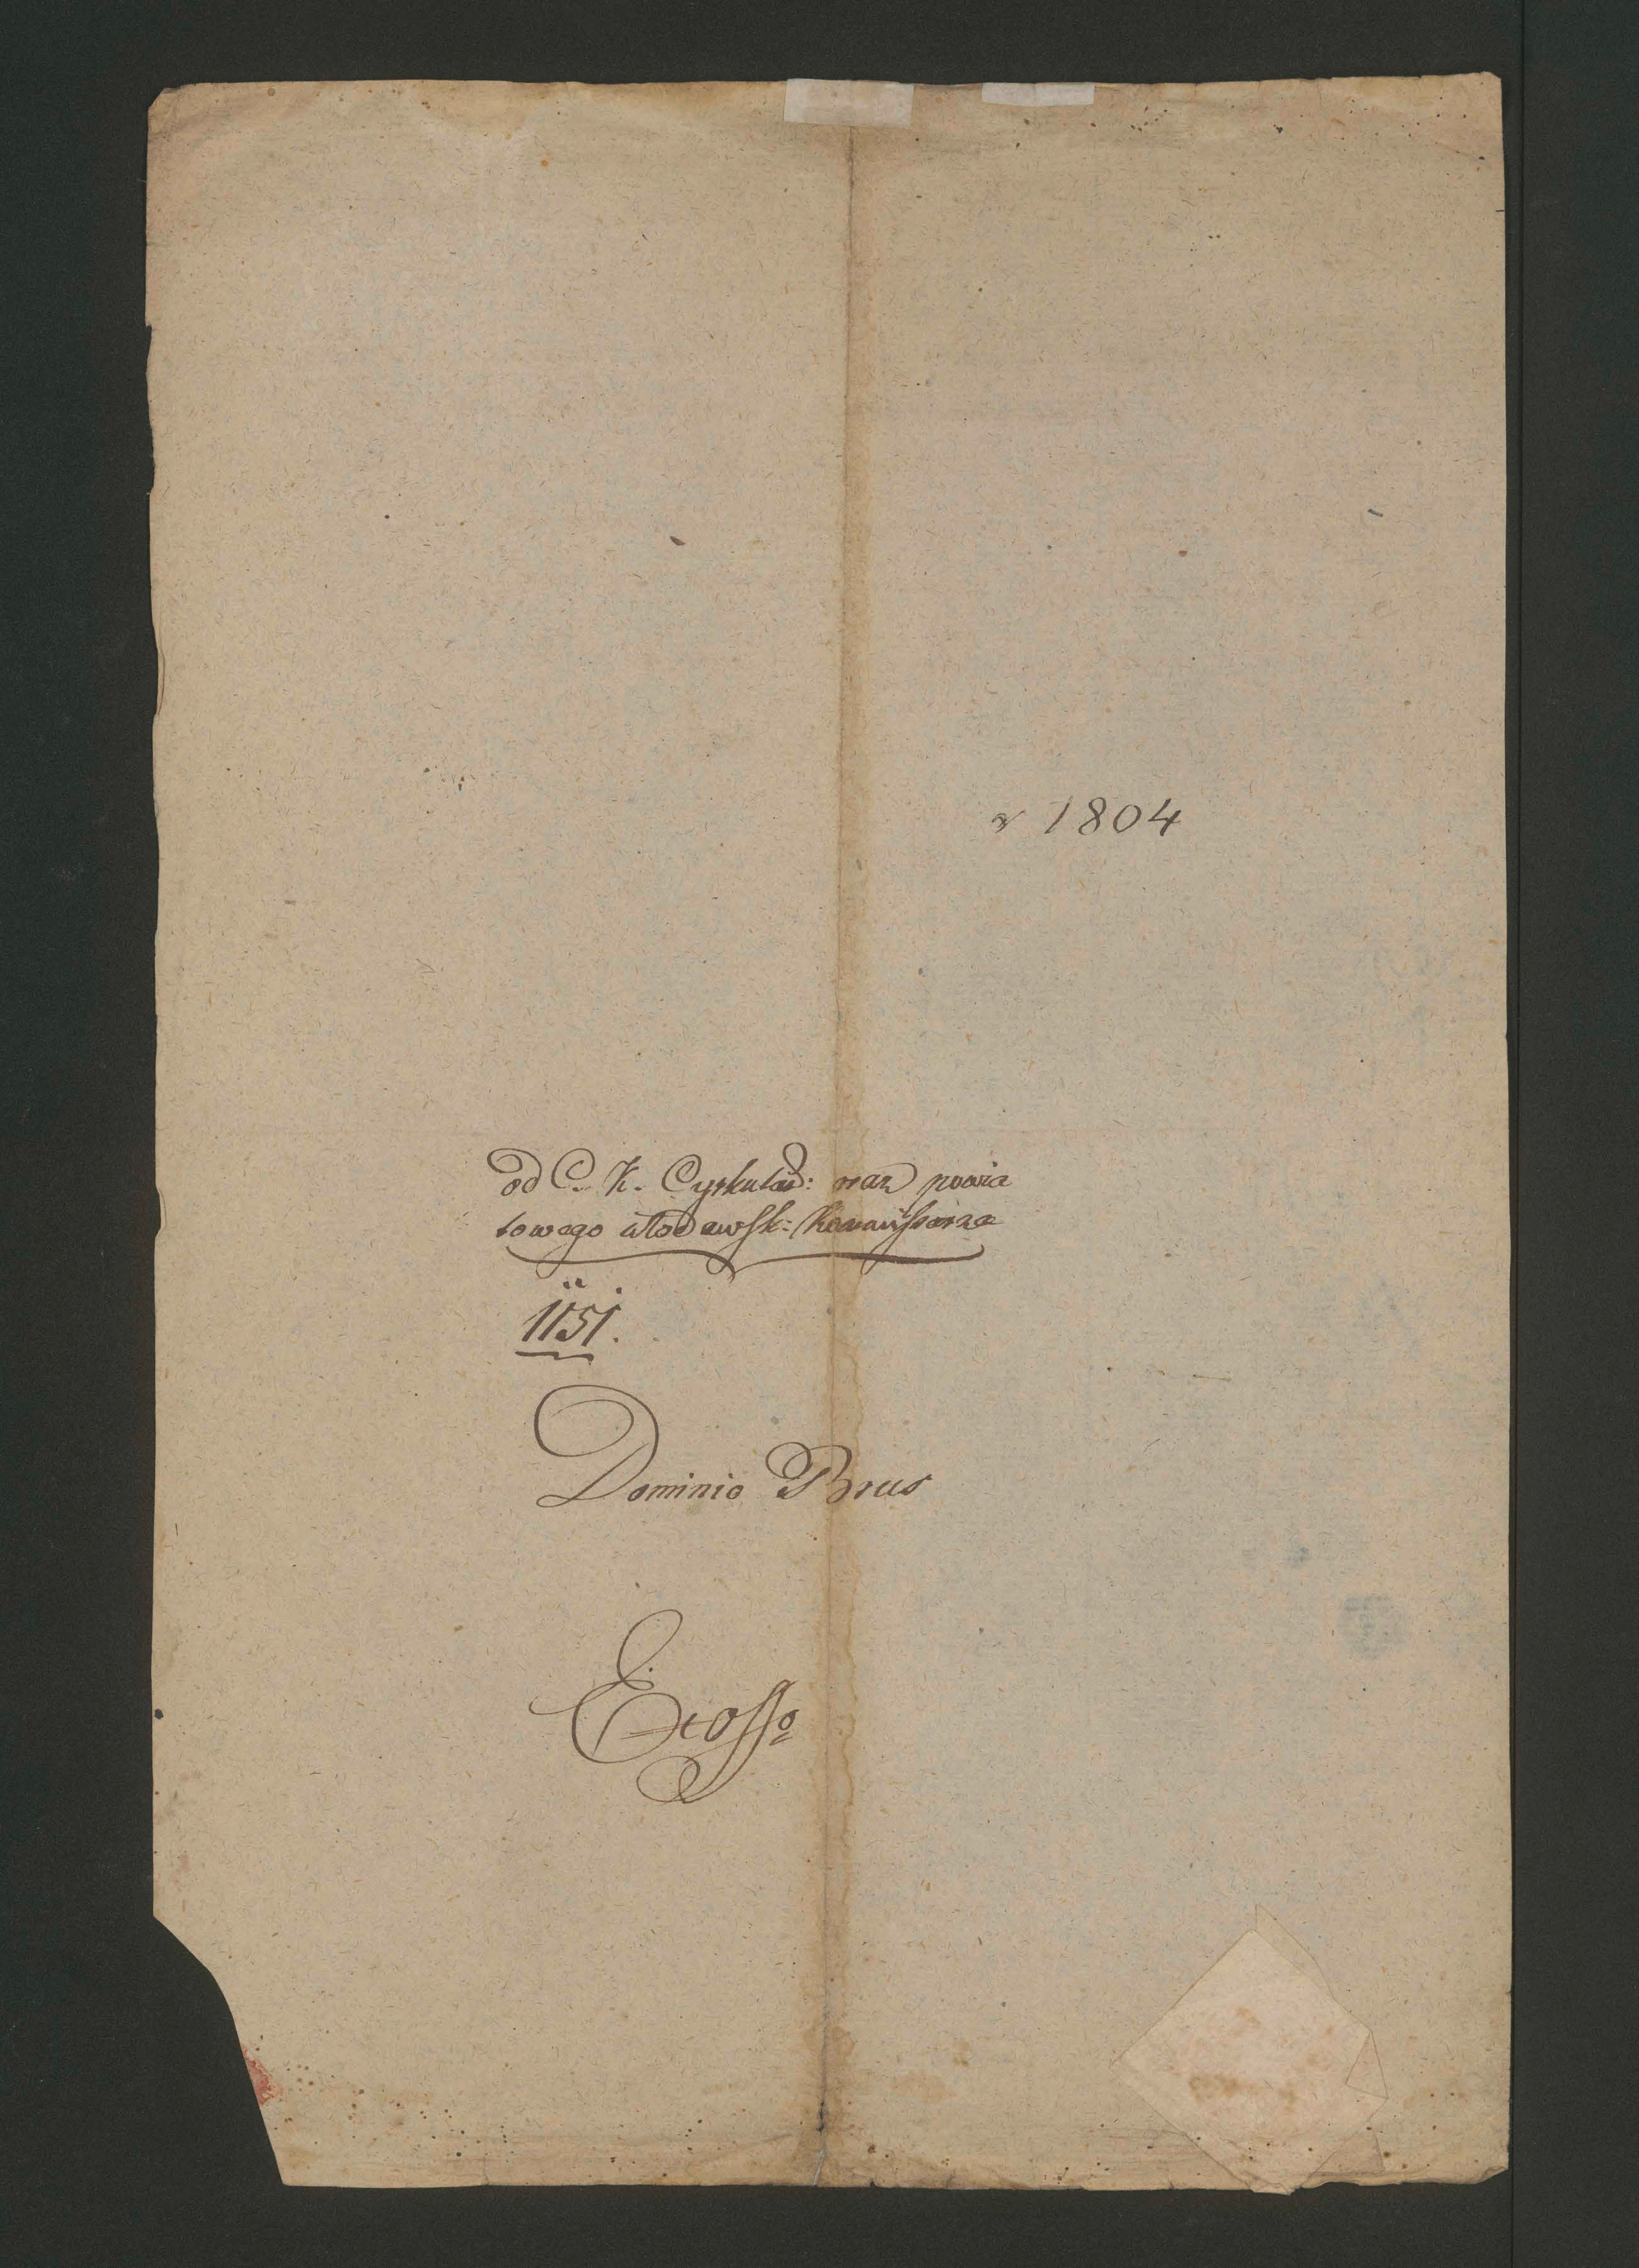 r 1804
od C. K. Cyrkular: oraz powia
towego włodawsk: Kommissarza
1151.
Dominio Brus
Ex offo